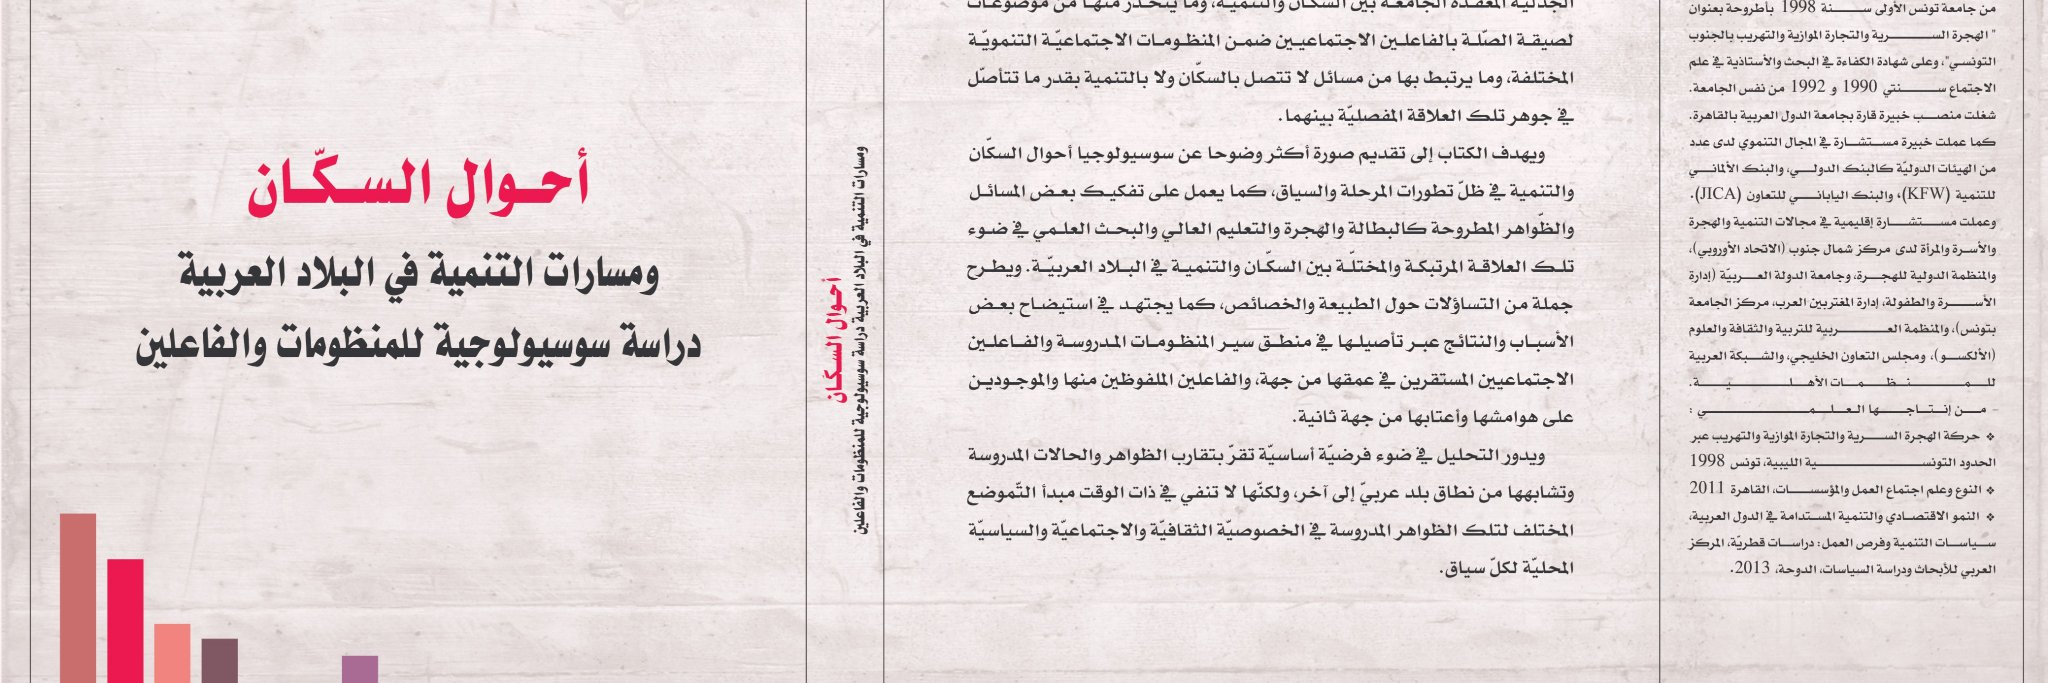 أحـوال السـكّـان
ومسارات التنمية في البلاد العربية
دراسة سوسيولوجية للمنظومات والفاعلين
أحـوال السـكّـان
ومسارات التنمية في البلاد العربية دراسة سوسيولوجية للمنظومات والفاعلين
الجدلية المعقدة الجامعة بين السكان والتنمية، وما ينحدر منها من موضوعات
لصيقة الصّلة بالفاعلين الاجتماعيين ضمن المنظومات الاجتماعيّة التنمويّة
المختلفة، وما يرتبط بها من مسائل لا تتصل بالسكّان ولا بالتنمية بقدر ما تتأصّل
في جوهر تلك العلاقة المفصليّة بينهما.
ويهدف الكتاب إلى تقديم صورة أكثر وضوحا عن سوسيولوجيا أحوال السكان
والتنمية في ظلّ تطورات المرحلة والسياق، كما يعمل على تفكيك بعض المسائل
والظّواهر المطروحة كالبطالة والهجرة والتعليم العالي والبحث العلمي في ضوء
تلك العلاقة المرتبكة والمختلّة بين السكّان والتنمية في البلاد العربيّة. ويطرح
جملة من التساؤلات حول الطبيعة والخصائص، كما يجتهد في استيضاح بعض
الأسباب والنتائج عبر تأصيلها في منطق سير المنظومات المدروسة والفاعلين
الاجتماعيين المستقرين في عمقها من جهة، والفاعلين الملفوظين منها والموجودين
على هوامشها وأعتابها من جهة ثانية.
ويدور التحليل في ضوء فرضيّة أساسيّة تقرّ بتقارب الظواهر والحالات المدروسة
وتشابهها من نطاق بلد عربيّ إلى آخر، ولكنّها لا تنفي في ذات الوقت مبدأ التّموضع
المختلف لتلك الظواهر المدروسة في الخصوصيّة الثقافيّة والاجتماعيّة والسياسيّة
المحليّة لكلّ سياق.
من جامعة تونس الأولى سنة 1998 بأطروحة بعنوان
" الهجرة السرية والتجارة الموازية والتهريب بالجنوب
التونسي"، وعلى شهادة الكفاءة في البحث والأستاذية في علم
الاجتماع سنتي 1990 و 1992 من نفس الجامعة.
شغلت منصب خبيرة قارة بجامعة الدول العربية بالقاهرة.
كما عملت خبيرة مستشارة في المجال التنموي لدى عدد
من الهيئات الدوليّة كالبنك الدولي، والبنك الألماني
للتنمية (KFW)، والبنك الياباني للتعاون (JICA).
وعملت مستشارة إقليمية في مجالات التنمية والهجرة
والأسرة والمرأة لدى مركز شمال جنوب (الاتحاد الأوروبي)،
والمنظمة الدولية للهجرة، وجامعة الدولة العربيّة (إدارة
الأسرة والطفولة، إدارة المغتربين العرب، مركز الجامعة
بتونس)، والمنظمة العربية للتربية والثقافة والعلوم
(الألكسو)، ومجلس التعاون الخليجي، والشبكة العربية
للمنظمات الأهليّة.
- من إنتاجها العلمي :
❖ حركة الهجرة السرية والتجارة الموازية والتهريب عبر
الحدود التونسية الليبية، تونس 1998
❖ النوع وعلم اجتماع العمل والمؤسسات، القاهرة 2011
❖ النمو الاقتصادي والتنمية المستدامة في الدول العربية،
سياسات التنمية وفرص العمل: دراسات قطريّة، المركز
العربي للأبحاث ودراسة السياسات، الدوحة، 2013.